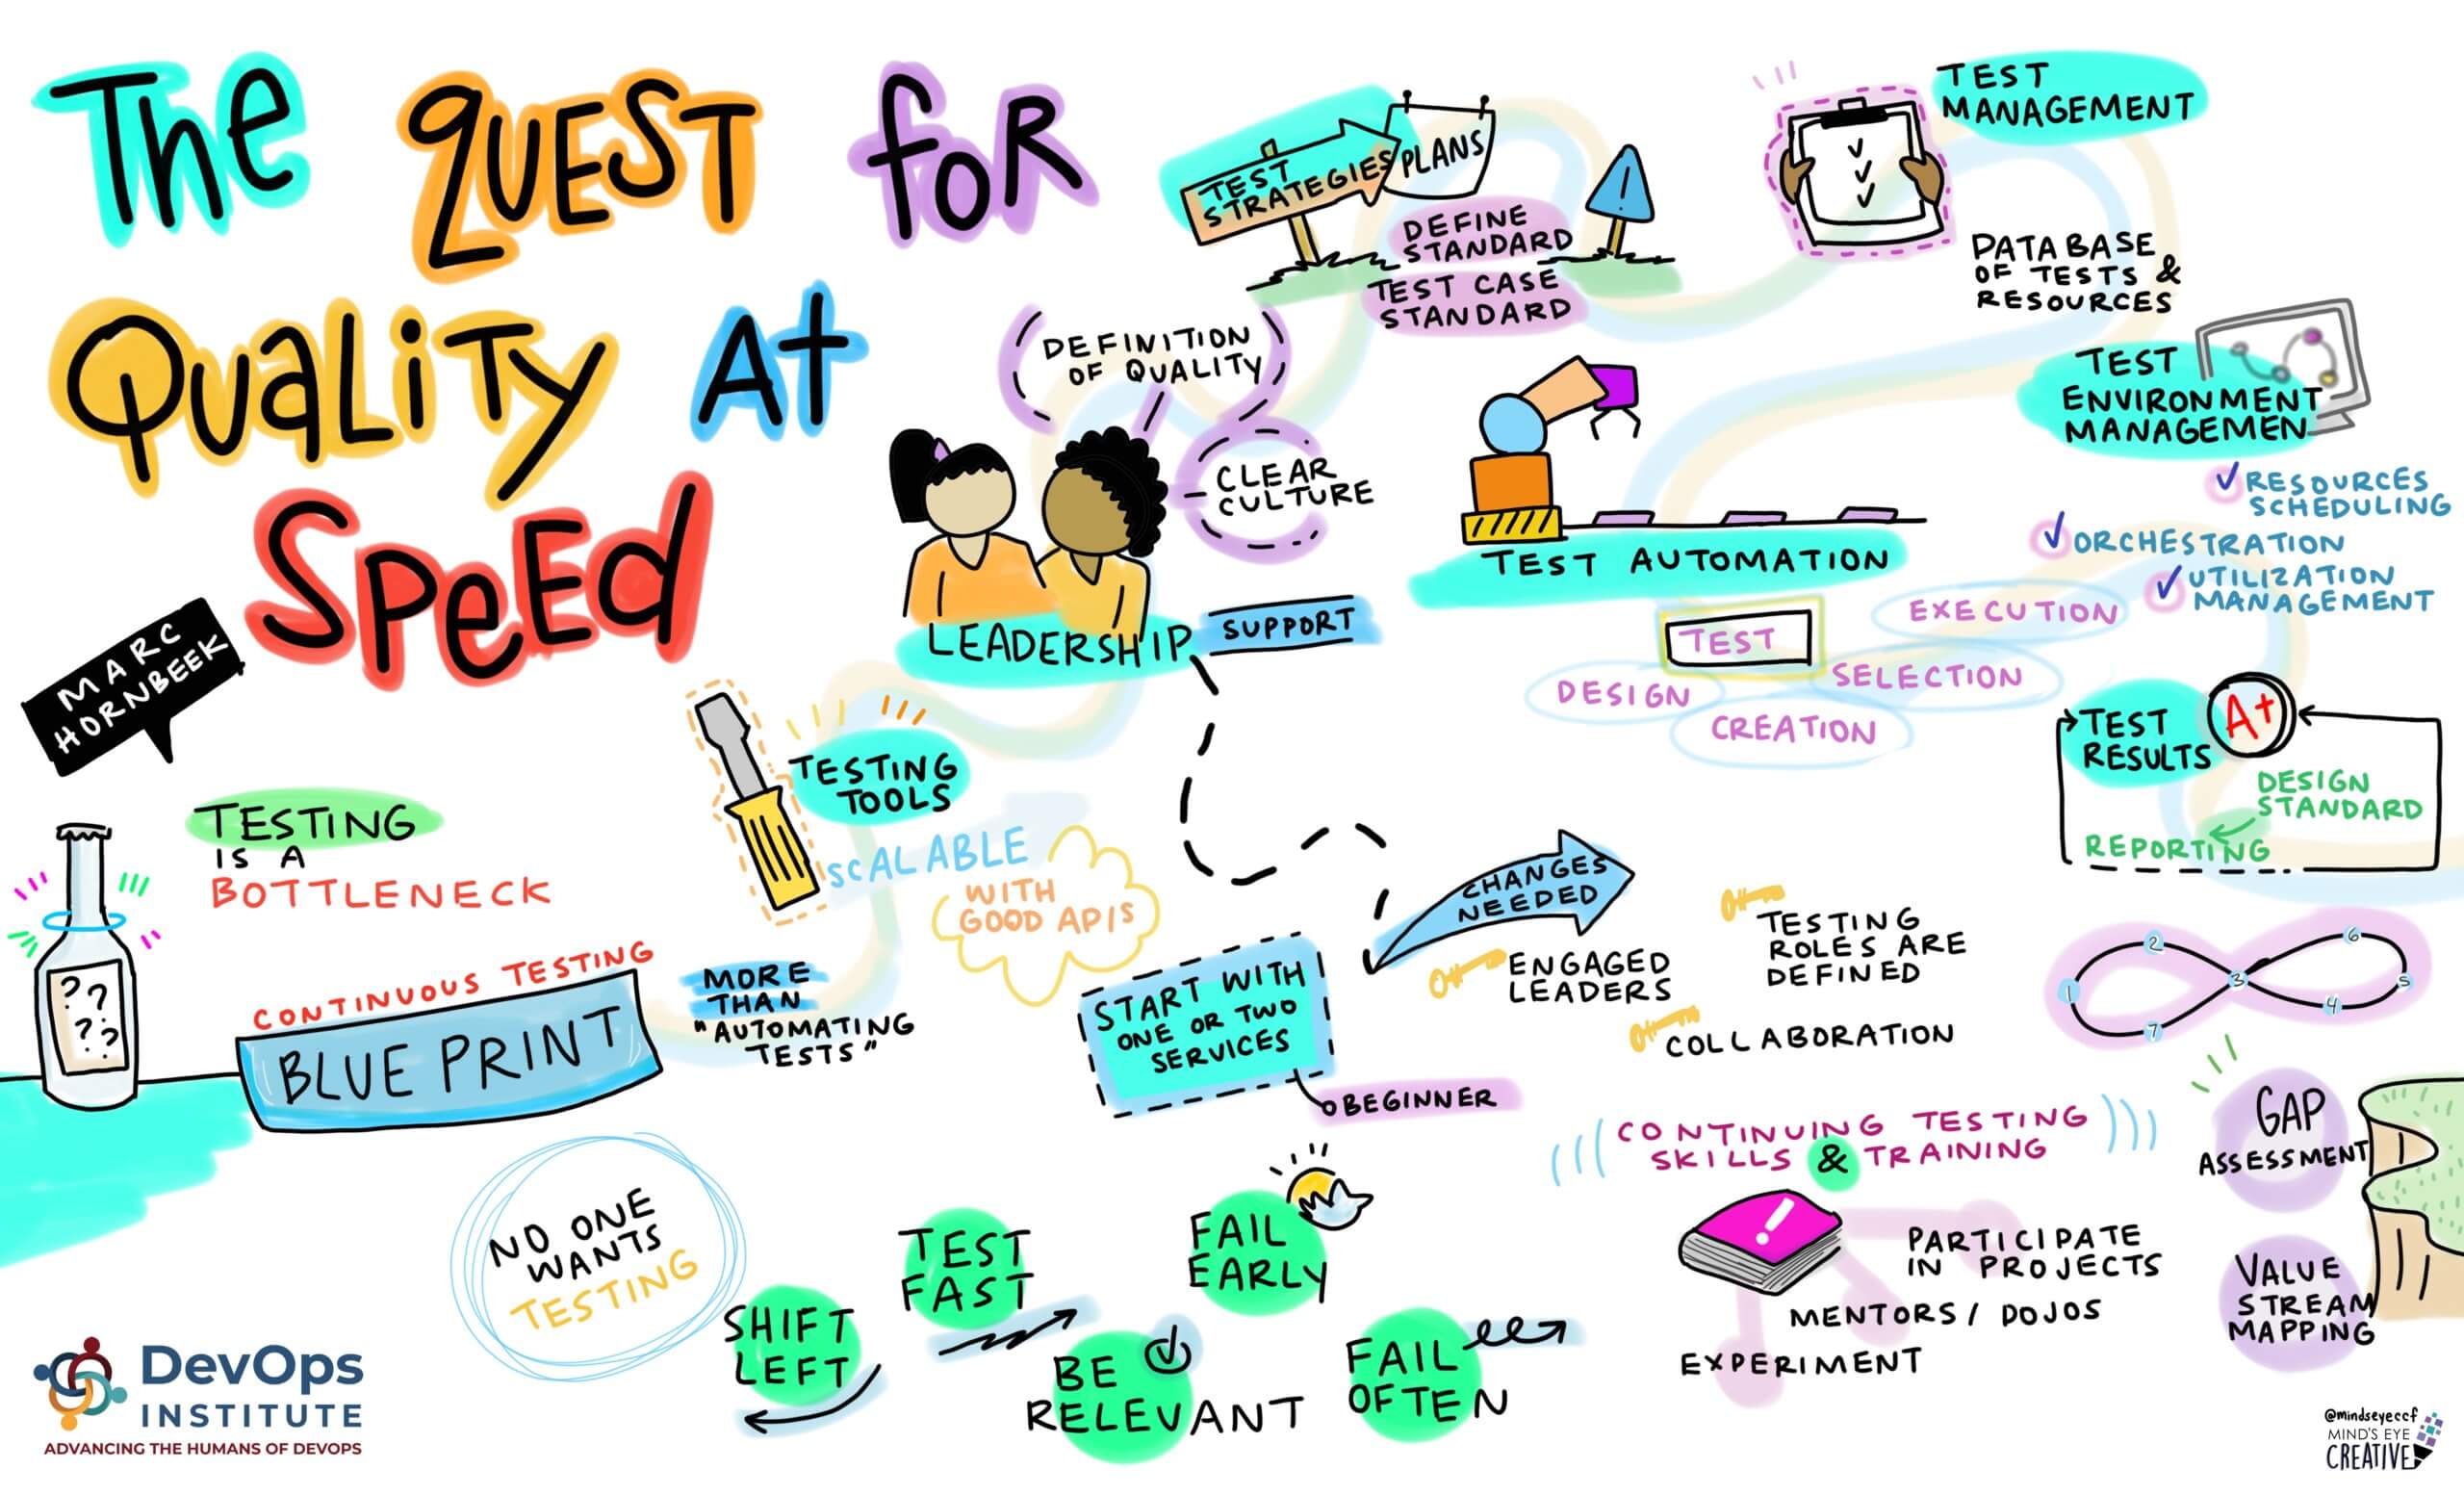 The QUEST foR
QuaLiTy At
SPeEd
MARC
HORNBEEK
TESTING
IS A
BOTTLENECK
? ?
? ?
CONTINUOUS TESTING
BLUE PRINT
MORE
THAN
"AUTOMATING
TESTS"
TESTING
TOOLS
SCALABLE
WITH
GOOD APIS
DEFINITION
OF QUALITY
CLEAR
CULTURE
LEADERSHIP
SUPPORT
TEST
STRATEGIES
PLANS
DEFINE
STANDARD
TEST CASE
STANDARD
!
TEST
MANAGEMENT
DATABASE
OF TESTS &
RESOURCES
TEST
ENVIRONMENT
MANAGEMEN
RESOURCES
SCHEDULING
ORCHESTRATION
UTILIZATION
MANAGEMENT
TEST AUTOMATION
TEST
EXECUTION
DESIGN
SELECTION
CREATION
TEST
RESULTS
A+
DESIGN
STANDARD
REPORTING
CHANGES
NEEDED
ENGAGED
LEADERS
TESTING
ROLES ARE
DEFINED
COLLABORATION
START WITH
ONE OR TWO
SERVICES
BEGINNER
1
2
3
4
5
6
7
GAP
ASSESSMENT
VALUE
STREAM
MAPPING
CONTINUING TESTING
SKILLS & TRAINING
!
PARTICIPATE
IN PROJECTS
MENTORS / DOJOS
EXPERIMENT
NO ONE
WANTS
TESTING
SHIFT
LEFT
TEST
FAST
BE
RELEVANT
FAIL
EARLY
FAIL
OFTEN
DevOps
INSTITUTE
ADVANCING THE HUMANS OF DEVOPS
@mindseyeccf
MIND'S EYE
CREATIVE